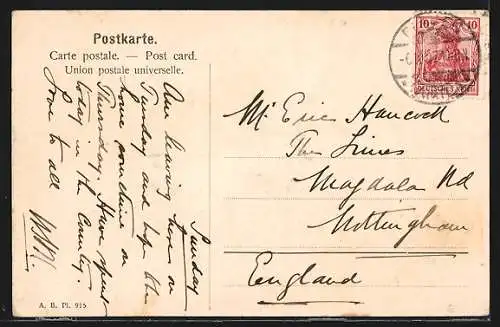 Postkarte.
Carte postale. — Post card.
Union postale universelle.
10 10
DEUTSCHES REICH
Sunday
Am leaving here on
Tuesday and hope to be
home sometime on
Thursday. Have spent
today in the Country.
Love to all
Mr Eric Hancock
The Limes
Magdala Rd
Nottingham
England
A. B. Pl. 925.